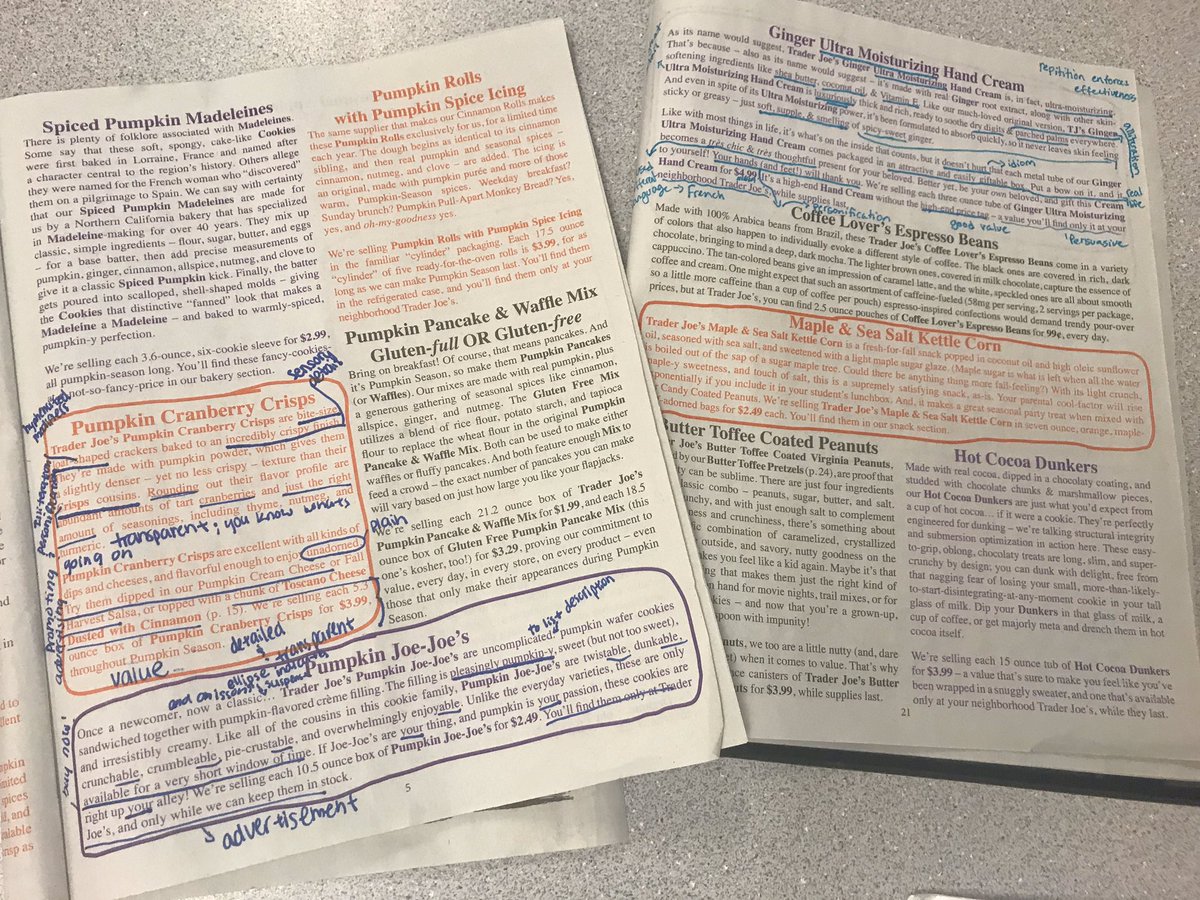 Spiced Pumpkin Madeleines
There is plenty of folklore associated with Madeleines.
Some say that these soft, spongy, cake-like Cookies
were first baked in Lorraine, France and named after
a character central to the region's history. Others allege
they were named for the French woman who "discovered"
them on a pilgrimage to Spain. We can say with certainty
that our Spiced Pumpkin Madeleines are made for
us by a Northern California bakery that has specialized
in Madeleine-making for over 40 years. They mix up
classic, simple ingredients – flour, sugar, butter, and eggs
– for a base batter, then add precise measurements of
pumpkin, ginger, cinnamon, allspice, nutmeg, and clove to
give it a classic Spiced Pumpkin kick. Finally, the batter
gets poured into scalloped, shell-shaped molds – giving
the Cookies that distinctive "fanned" look that makes a
Madeleine a Madeleine – and baked to warmly-spiced,
pumpkin-y perfection.
We're selling each 3.6-ounce, six-cookie sleeve for $2.99,
all pumpkin-season long. You'll find these fancy-cookies-
not-so-fancy-price in our bakery section.
sensory
details
Pumpkin Cranberry Crisps
Trader Joe's Pumpkin Cranberry Crisps are bite-size,
loaf-shaped crackers baked to an incredibly crispy finish.
They're made with pumpkin powder, which gives them
a slightly denser – yet no less crispy – texture than their
crisps cousins. Rounding out their flavor profile are
abundant amounts of tart cranberries and just the right
amount of seasonings, including thyme, nutmeg, and
turmeric.
transparent; you know what's
going on
Pumpkin Cranberry Crisps are excellent with all kinds of
dips and cheeses, and flavorful enough to enjoy unadorned.
plain
Try them dipped in our Pumpkin Cream Cheese or Fall
Harvest Salsa, or topped with a chunk of Toscano Cheese
Dusted with Cinnamon (p. 15). We're selling each 5.3
ounce box of Pumpkin Cranberry Crisps for $3.99,
throughout Pumpkin Season.
value
promoting
advertising
detailed
transparent
Pumpkin Rolls
with Pumpkin Spice Icing
The same supplier that makes our Cinnamon Rolls makes
these Pumpkin Rolls exclusively for us, for a limited time
each year. The dough begins as identical to its cinnamon
sibling, and then real pumpkin and seasonal spices –
cinnamon, nutmeg, and clove – are added. The icing is
an original, made with pumpkin purée and more of those
warm, Pumpkin-Season spices. Weekday breakfast? Yes.
Sunday brunch? Pumpkin Pull-Apart Monkey Bread? Yes,
yes, and oh-my-goodness yes.
We're selling Pumpkin Rolls with Pumpkin Spice Icing
in the familiar "cylinder" packaging. Each 17.5 ounce
"cylinder" of five ready-for-the-oven rolls is $3.99, for as
long as we can make Pumpkin Season last. You'll find them
in the refrigerated case, and you'll find them only at your
neighborhood Trader Joe's.
Pumpkin Pancake & Waffle Mix
Gluten-full OR Gluten-free
Bring on breakfast! Of course, that means pancakes. And
it's Pumpkin Season, so make them Pumpkin Pancakes
(or Waffles). Our mixes are made with real pumpkin, plus
a generous gathering of seasonal spices like cinnamon,
allspice, ginger, and nutmeg. The Gluten Free Mix
utilizes a blend of rice flour, potato starch, and tapioca
flour to replace the wheat flour in the original Pumpkin
Pancake & Waffle Mix. Both can be used to make either
waffles or fluffy pancakes. And both feature enough Mix to
feed a crowd – the exact number of pancakes you can make
will vary based on just how large you like your flapjacks.
We're selling each 21.2 ounce box of Trader Joe's
Pumpkin Pancake & Waffle Mix for $1.99, and each 18.5
ounce box of Gluten Free Pumpkin Pancake Mix (this
one's kosher, too!) for $3.29, proving our commitment to
value, every day, in every store, on every product – even
those that only make their appearances during Pumpkin
Season.
to list description
Pumpkin Joe-Joe's
Once a newcomer, now a classic, Trader Joe's Pumpkin Joe-Joe's are uncomplicated: pumpkin wafer cookies
sandwiched together with pumpkin-flavored crème filling. The filling is pleasingly pumpkin-y, sweet (but not too sweet),
and irresistibly creamy. Like all of the cousins in this cookie family, Pumpkin Joe-Joe's are twistable, dunkable,
crunchable, crumbleable, pie-crustable, and overwhelmingly enjoyable. Unlike the everyday varieties, these are only
available for a very short window of time. If Joe-Joe's are your thing, and pumpkin is your passion, these cookies are
right up your alley! We're selling each 10.5 ounce box of Pumpkin Joe-Joe's for $2.49. You'll find them only at Trader
Joe's, and only while we can keep them in stock.
buy now!
advertisement
5
Ginger Ultra Moisturizing Hand Cream
repitition enforces
effectiveness
As its name would suggest, Trader Joe's Ginger Ultra Moisturizing Hand Cream is, in fact, ultra-moisturizing.
That's because – also as its name would suggest – it's made with real Ginger root extract, along with other skin-
softening ingredients like shea butter, coconut oil, & Vitamin E. Like our much-loved original version, TJ's Ginger
Ultra Moisturizing Hand Cream is luxuriously thick and rich, ready to soothe dry digits & parched palms everywhere.
And even in spite of its Ultra Moisturizing power, it's been formulated to absorb quickly, so it never leaves skin feeling
sticky or greasy – just soft, supple, & smelling of spicy-sweet ginger.
alliteration
idiom
Like with most things in life, it's what's on the inside that counts, but it doesn't hurt that each metal tube of our Ginger
Ultra Moisturizing Hand Cream comes packaged in an attractive and easily giftable box. Put a bow on it, and it
becomes a très chic & très thoughtful present for your beloved. Better yet, be your own beloved, and gift this Cream
to yourself! Your hands (and feet!) will thank you. We're selling each three ounce tube of Ginger Ultra Moisturizing
Hand Cream for $4.99. It's a high-end Hand Cream without the high-end price tag – a value you'll find only at your
neighborhood Trader Joe's, while supplies last.
language → French
personification
good value
persuasive
Coffee Lover's Espresso Beans
Made with 100% Arabica beans from Brazil, these Trader Joe's Coffee Lover's Espresso Beans come in a variety
of colors that also happen to individually evoke a different style of coffee. The black ones are covered in rich, dark
chocolate, bringing to mind a deep, dark mocha. The lighter brown ones, covered in milk chocolate, capture the essence of
cappuccino. The tan-colored beans give an impression of caramel latte, and the white, speckled ones are all about smooth
coffee and cream. One might expect that such an assortment of caffeine-fueled (58mg per serving, 2 servings per package,
so a little more caffeine than a cup of coffee per pouch) espresso-inspired confections would demand trendy pour-over
prices, but at Trader Joe's, you can find 2.5 ounce pouches of Coffee Lover's Espresso Beans for 99¢, every day.
Maple & Sea Salt Kettle Corn
Trader Joe's Maple & Sea Salt Kettle Corn is a fresh-for-fall snack popped in coconut oil and high oleic sunflower
oil, seasoned with sea salt, and sweetened with a light maple sugar glaze. (Maple sugar is what is left when all the water
is boiled out of the sap of a sugar maple tree. Could there be anything more fall-feeling?) With its light crunch,
maple-y sweetness, and touch of salt, this is a supremely satisfying snack, as-is. Your parental cool-factor will rise
exponentially if you include it in your student's lunchbox. And, it makes a great seasonal party treat when mixed with
Candy Coated Peanuts. We're selling Trader Joe's Maple & Sea Salt Kettle Corn in seven ounce, orange, maple-
adorned bags for $2.49 each. You'll find them in our snack section.
Butter Toffee Coated Peanuts
Joe's Butter Toffee Coated Virginia Peanuts,
by our Butter Toffee Pretzels (p. 24), are proof that
ty can be sublime. There are just four ingredients
classic combo – peanuts, sugar, butter, and salt.
unchy, and with just enough salt to complement
ness and crunchiness, there's something about
fic combination of caramelized, crystallized
outside, and savory, nutty goodness on the
akes you feel like a kid again. Maybe it's that
ng that makes them just the right kind of
on hand for movie nights, trail mixes, or for
kies – and now that you're a grown-up,
spoon with impunity!
nuts, we too are a little nutty (and, dare
et) when it comes to value. That's why
ce canisters of Trader Joe's Butter
uts for $3.99, while supplies last.
Hot Cocoa Dunkers
Made with real cocoa, dipped in a chocolaty coating, and
studded with chocolate chunks & marshmallow pieces,
our Hot Cocoa Dunkers are just what you'd expect from
a cup of hot cocoa… if it were a cookie. They're perfectly
engineered for dunking – we're talking structural integrity
and submersion optimization in action here. These easy-
to-grip, oblong, chocolaty treats are long, slim, and super-
crunchy by design; you can dunk with delight, free from
that nagging fear of losing your small, more-than-likely-
to-start-disintegrating-at-any-moment cookie in your tall
glass of milk. Dip your Dunkers in that glass of milk, a
cup of coffee, or get majorly meta and drench them in hot
cocoa itself.
We're selling each 15 ounce tub of Hot Cocoa Dunkers
for $3.99 – a value that's sure to make you feel like you've
been wrapped in a snuggly sweater, and one that's available
only at your neighborhood Trader Joe's, while they last.
21